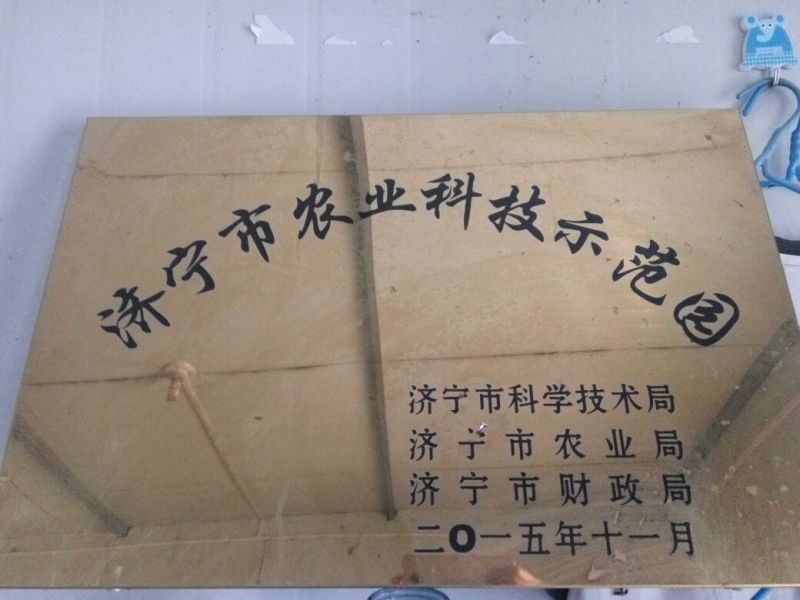 济宁市农业科技示范园
济宁市科学技术局
济宁市农业局
济宁市财政局
二0一五年十一月